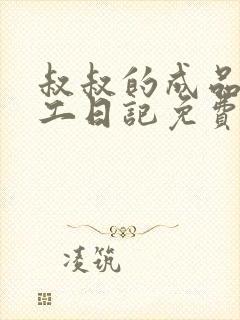 叔叔的成品
工日記免費
凌筑